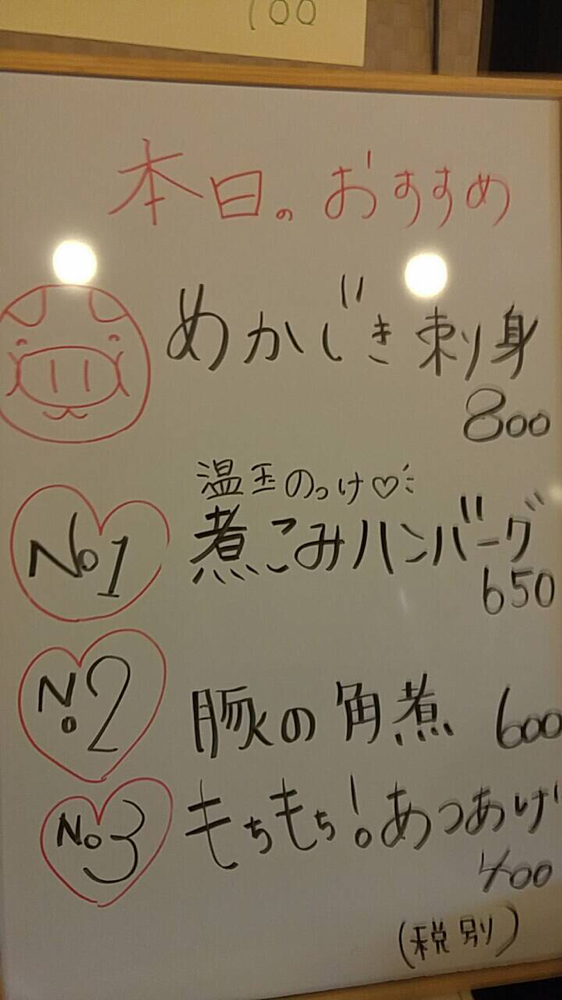 100
本日のおすすめ
めかじき刺身
800
温玉のっけ♡
No1 煮こみハンバーグ
650
No2 豚の角煮 600
No3 もちもち!あつあげ
400
(税別)